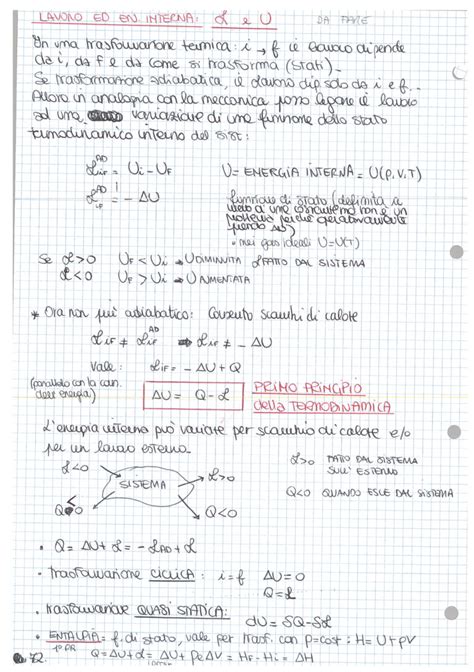 LAVORO ED EN. INTERNA: L e U DA FARE
In una trasformazione termica: i → f il lavoro dipende
da i, da f e da come si trasforma (stati).
Se trasformazione adiabatica, il lavoro dip solo da i e f.
Allora in analogia con la meccanica posso legare il lavoro
ad una variazione di una funzione dello stato
termodinamico interno del sist:
L_if^AD = Ui - UF U = ENERGIA INTERNA = U(P,V,T)
L_if^AD = - ΔU funzione di stato (definita a
meno di una costante ma non è un
problema perché
prendo ΔU)
• nei gas ideali U=U(T)
Se L>0 UF < Ui → U DIMINUITA L FATTO DAL SISTEMA
L<0 UF > Ui → U AUMENTATA
* Ora non più adiabatico: Consento scambi di calore
L_iF ≠ L_iF^AD ⇒ L_iF ≠ - ΔU
Vale: L_iF = - ΔU + Q
(parallelo con la con.
dell'energia) ΔU = Q - L PRIMO PRINCIPIO
della TERMODINAMICA
L'energia interna può variare per scambio di calore e/o
per un lavoro esterno.
L<0 L>0 L>0 FATTO DAL SISTEMA
SULL'ESTERNO
SISTEMA
Q>0 Q<0 Q<0 QUANDO ESCE DAL SISTEMA
• Q = ΔU + L = - L_AD + L
• Trasformazione CICLICA: i=f ΔU=0
Q=L
• trasformazione QUASI STATICA: dU = δQ - δL
• ENTALPIA = f. di stato, vale per trasf. con p=cost: H = U+PV
1° PR Q = ΔU + L = ΔU + Pe ΔV = HF - Hi = ΔH